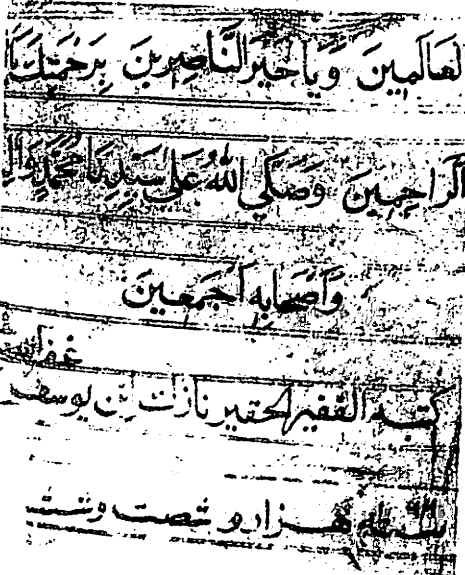 لعالمين وَيَا خَيْرَ النَّاصِرِينَ بِرَحْمَتِكَ يَا
الرَّاحِمِينَ وَصَلَّى اللهُ عَلَى سَيِّدِنَا مُحَمَّدٍ وَالِ
وَاَصْحَابِهِ اَجْمَعِينَ
غفر
كتبه الفقير الحقير ابن يوسف
هزار و شصت و